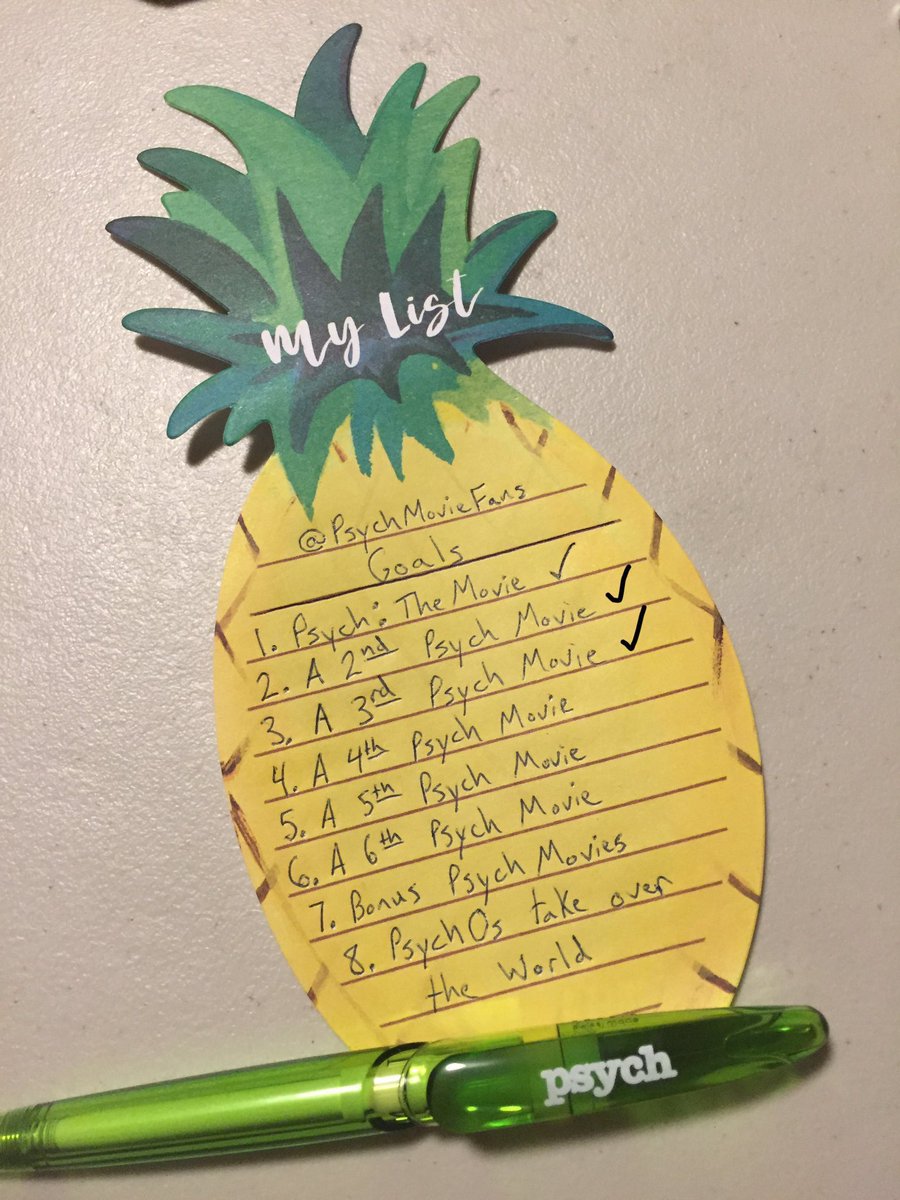 My List
@PsychMovieFans
Goals
1. Psych: The Movie ✓
2. A 2nd Psych Movie ✓
3. A 3rd Psych Movie ✓
4. A 4th Psych Movie
5. A 5th Psych Movie
6. A 6th Psych Movie
7. Bonus Psych Movies
8. PsychOs take over
the World
psych